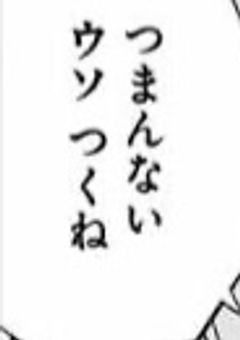 つまんない
ウソ つくね